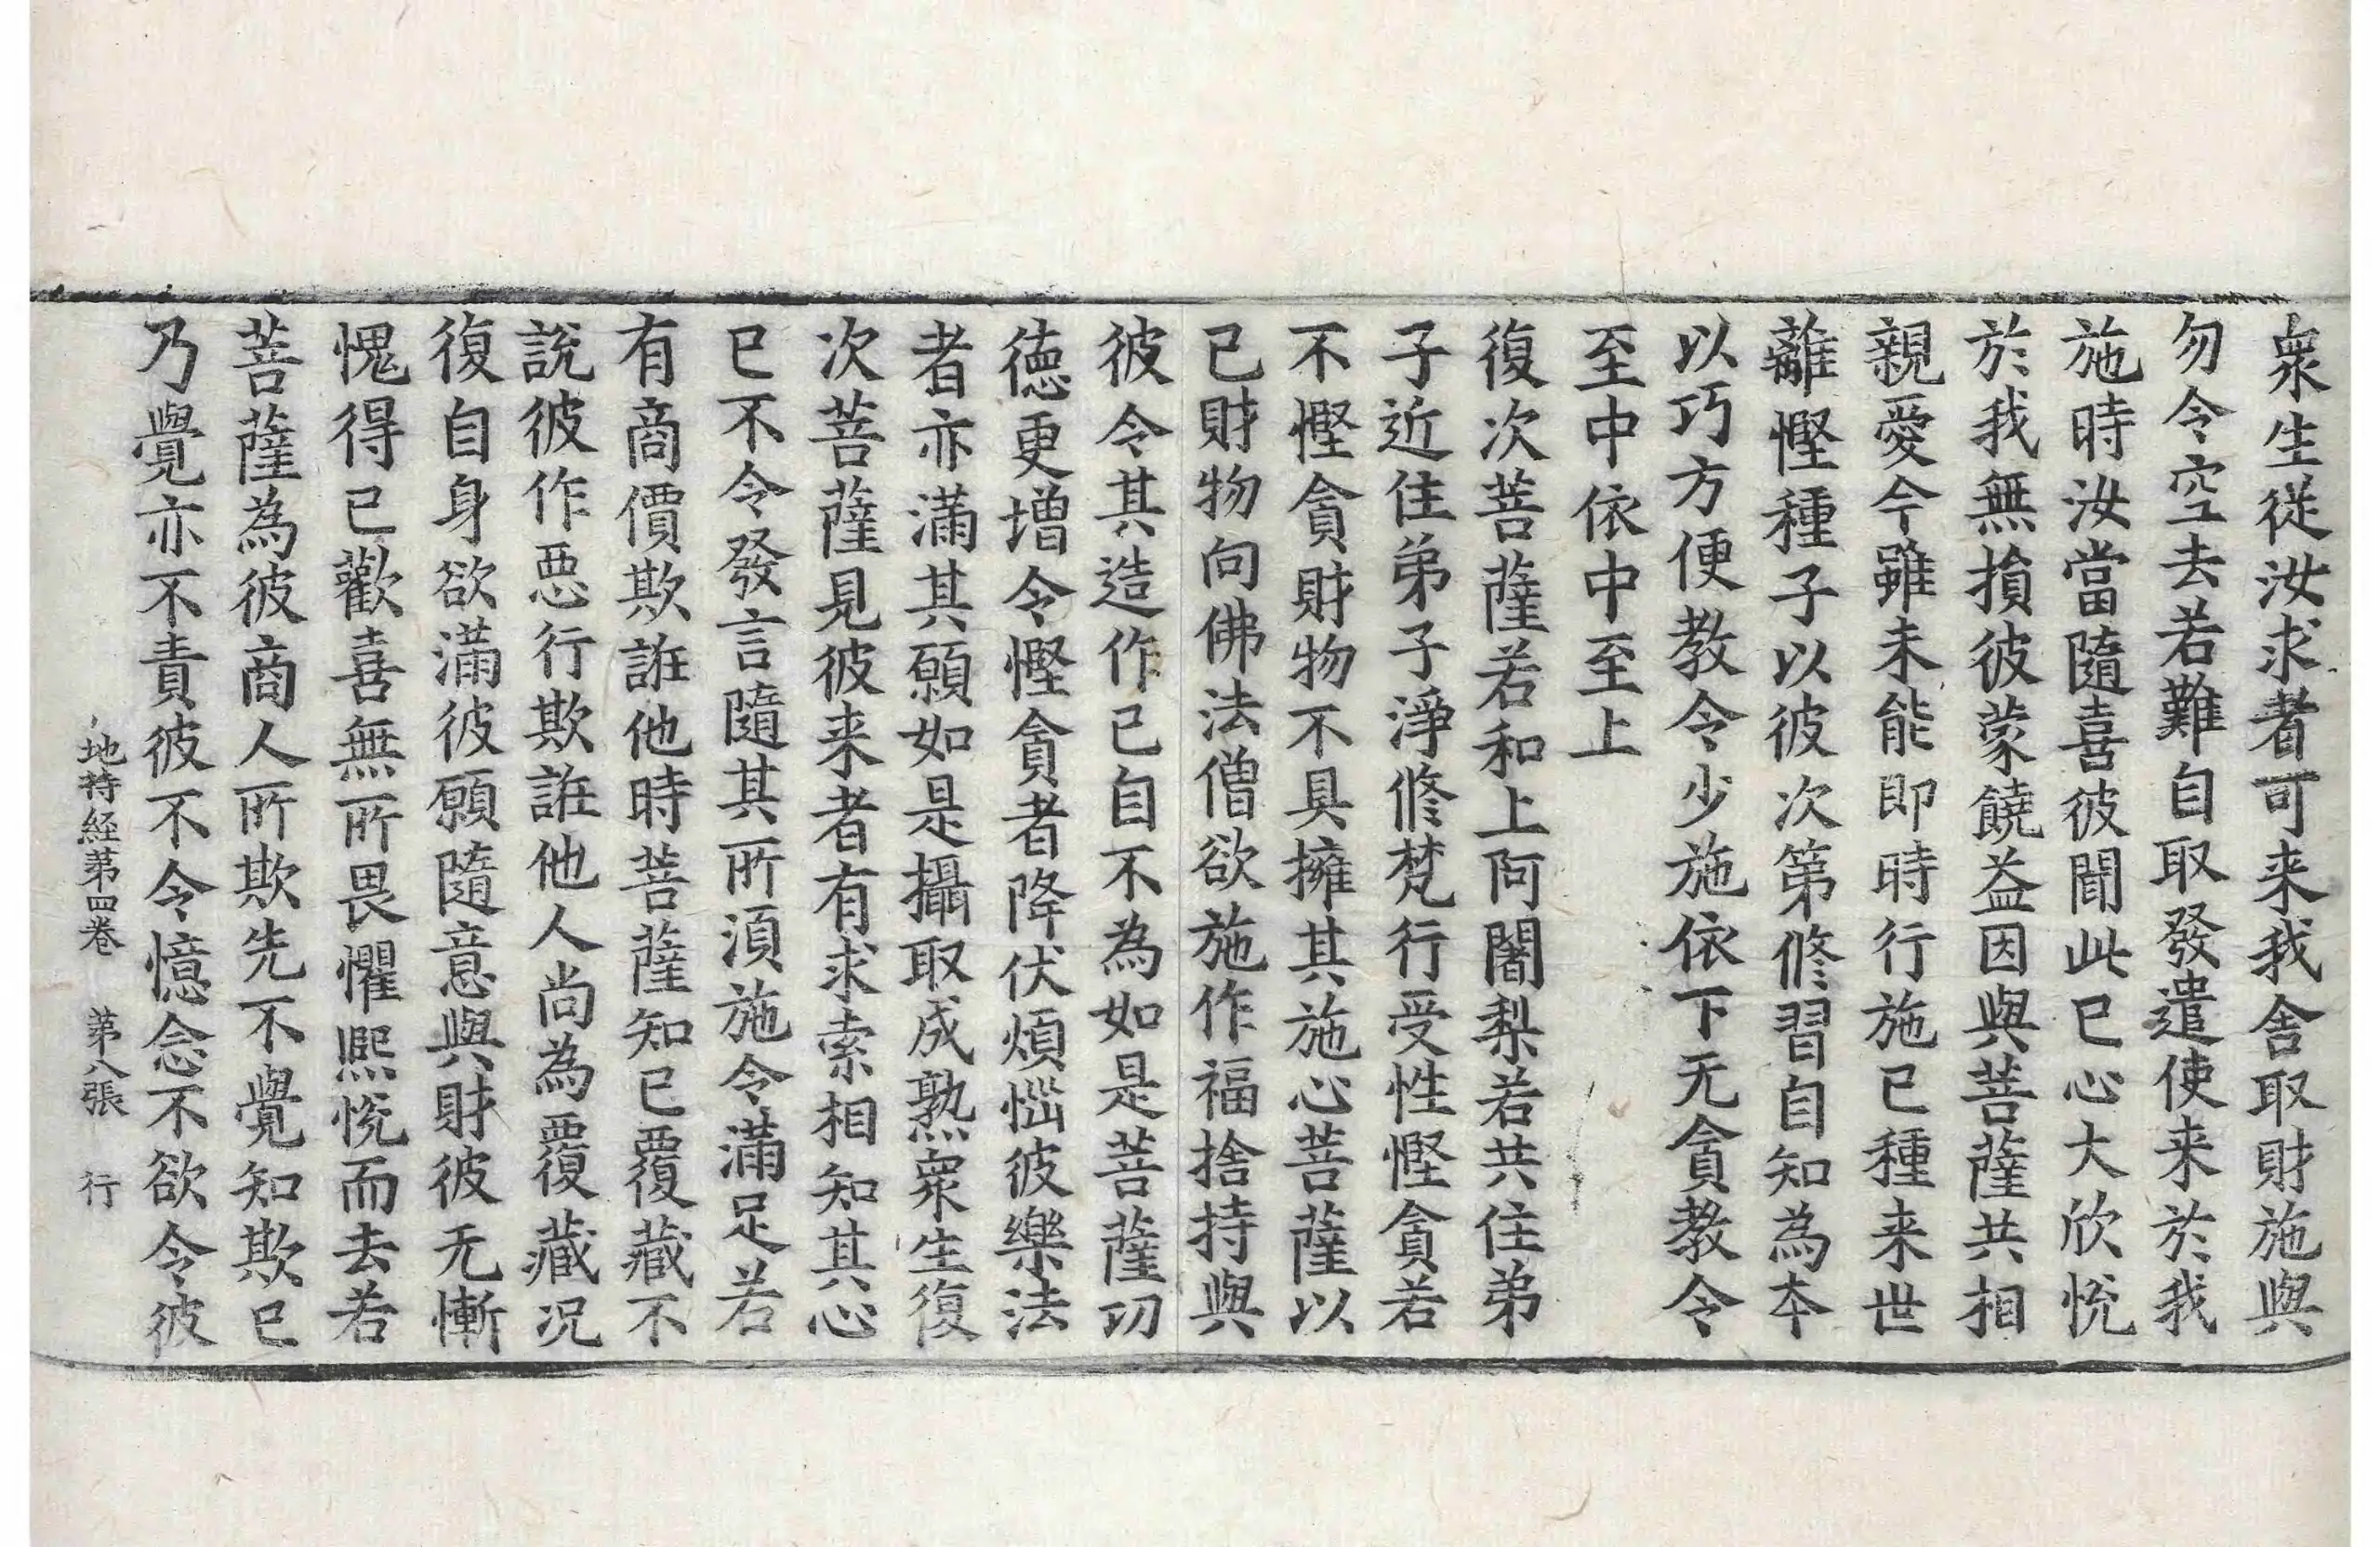 衆生從汝求者可来我舍取財施與
勿令空去若難自取發遣使来於我
施時汝當隨喜彼聞此已心大欣恱
於我無損彼蒙饒益因與菩薩共相
親愛今雖未能即時行施已種来世
離慳種子以彼次第修習自知為本
以巧方便教令少施依下无貪教令
至中依中至上
復次菩薩若和上阿闍梨若共住弟
子近住弟子淨修梵行受性慳貪若
不慳貪財物不具擁其施心菩薩以
己財物向佛法僧欲施作福捨持與
彼令其造作已自不為如是菩薩功
德更增令慳貪者降伏煩惱彼樂法
者亦滿其願如是攝取成熟衆生復
次菩薩見彼来者有求索相知其心
已不令發言隨其所湏施令滿足若
有商價欺誑他時菩薩知已覆藏不
說彼作惡行欺誑他人尚為覆藏况
復自身欲滿彼願隨意與財彼无慚
愧得已歡喜無所畏懼熙恱而去若
菩薩為彼商人所欺先不覺知欺已
乃覺亦不責彼不令憶念不欲令彼
地持経苐四卷 苐八張 行